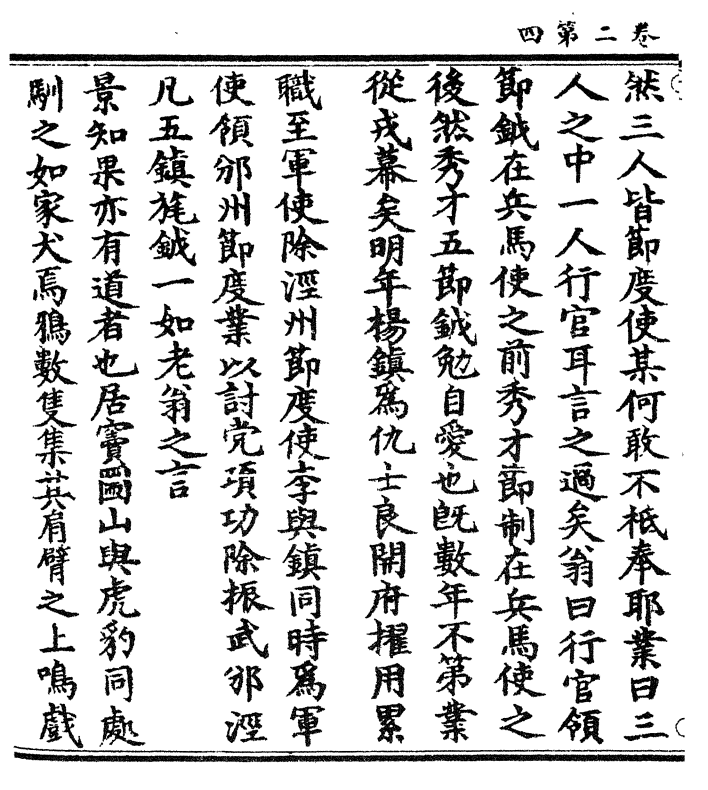 卷二第四
然三人皆節度使某何敢不祗奉耶業曰三
人之中一人行官耳言之過矣翁曰行官領
節鉞在兵馬使之前秀才節制在兵馬使之
後然秀才五節鉞勉自愛也旣數年不第業
從戎幕矣明年楊鎮爲仇士良開府擢用累
職至軍使除涇州節度使李與鎮同時爲軍
使領邠州節度業以討党項功除振武邠涇
凡五鎮旄鉞一如老翁之言
景知果亦有道者也居竇圌山與虎豹同處
馴之如家犬焉鴉數隻集其肩臂之上鳴戲